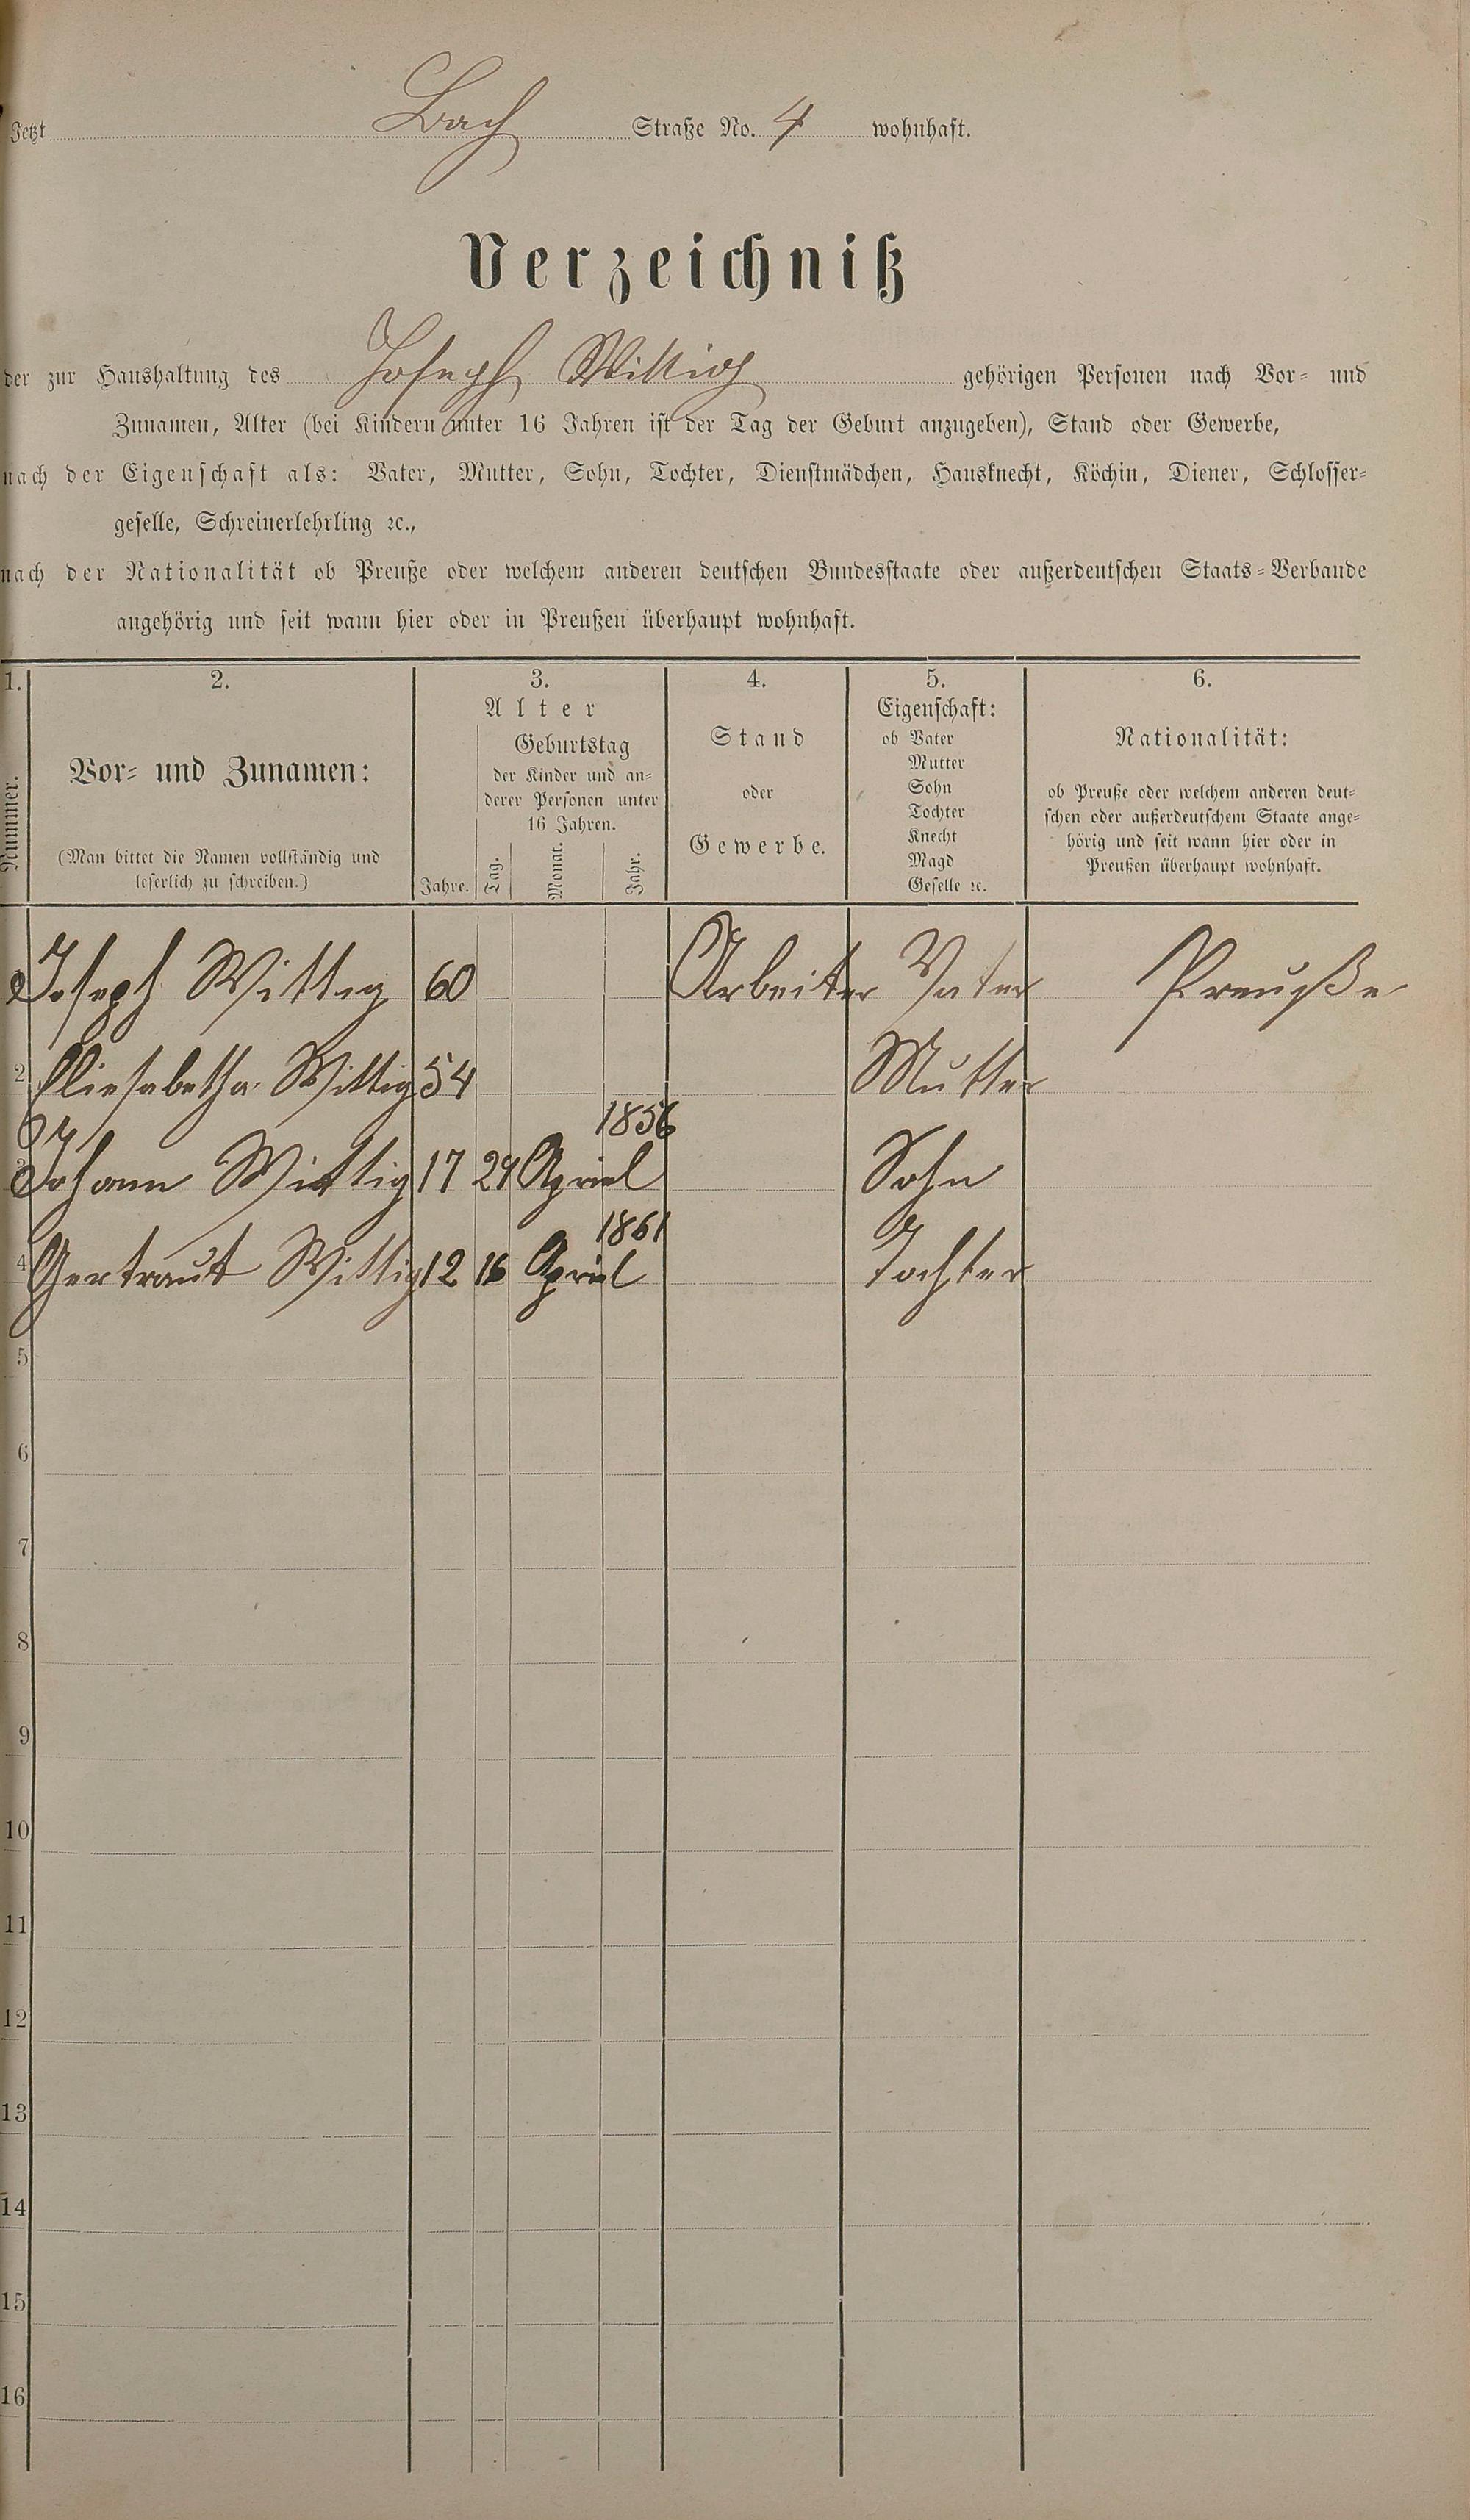 Jetzt Bach Straße No. 4 wohnhaft.
Verzeichniß
der zur Haushaltung des Joseph Wittig gehörigen Personen nach Vor- und
Zunamen, Alter (bei Kindern unter 16 Jahren ist der Tag der Geburt anzugeben), Stand oder Gewerbe,
nach der Eigenschaft als: Vater, Mutter, Sohn, Tochter, Dienstmädchen, Hausknecht, Köchin, Diener, Schlosser-
geselle, Schreinerlehrling ꝛc.,
nach der Nationalität ob Preuße oder welchem anderen deutschen Bundesstaate oder außerdeutschen Staats-Verbande
angehörig und seit wann hier oder in Preußen überhaupt wohnhaft.
1.
Nummer.
2.
Vor- und Zunamen:
(Man bittet die Namen vollständig und
leserlich zu schreiben.)
3.
Alter
Geburtstag
der Kinder und an-
derer Personen unter
16 Jahren.
Jahre. Tag. Monat. Jahr.
4.
Stand
oder
Gewerbe.
5.
Eigenschaft:
ob Vater
Mutter
Sohn
Tochter
Knecht
Magd
Geselle ꝛc.
6.
Nationalität:
ob Preuße oder welchem anderen deut-
schen oder außerdeutschem Staate ange-
hörig und seit wann hier oder in
Preußen überhaupt wohnhaft.
Joseph Wittig 60 Arbeiter Vater Preuße
2 Eliesabetha Wittig 54 Mutter
1856
3 Johann Wittig 17 24 Apriel Sohn
1861
4 Gertraut Wittig 12 16 Apriel Tochter
5
6
7
8
9
10
11
12
13
14
15
16